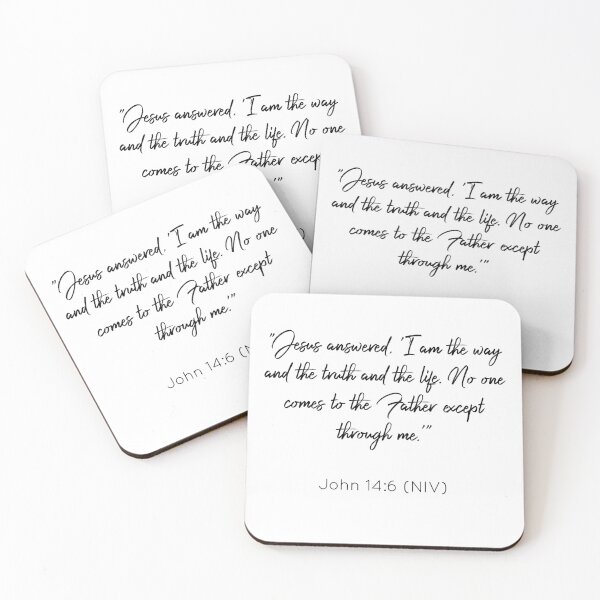 "Jesus answered, 'I am the way
and the truth and the life. No one
comes to the Father
"Jesus answered, 'I am the way
and the truth and the life. No one
comes to the Father except
through me.'"
"Jesus answered, 'I am the way
and the truth and the life. No one
comes to the Father except
through me.'"
John 14:6
"Jesus answered, 'I am the way
and the truth and the life. No one
comes to the Father except
through me.'"
John 14:6 (NIV)